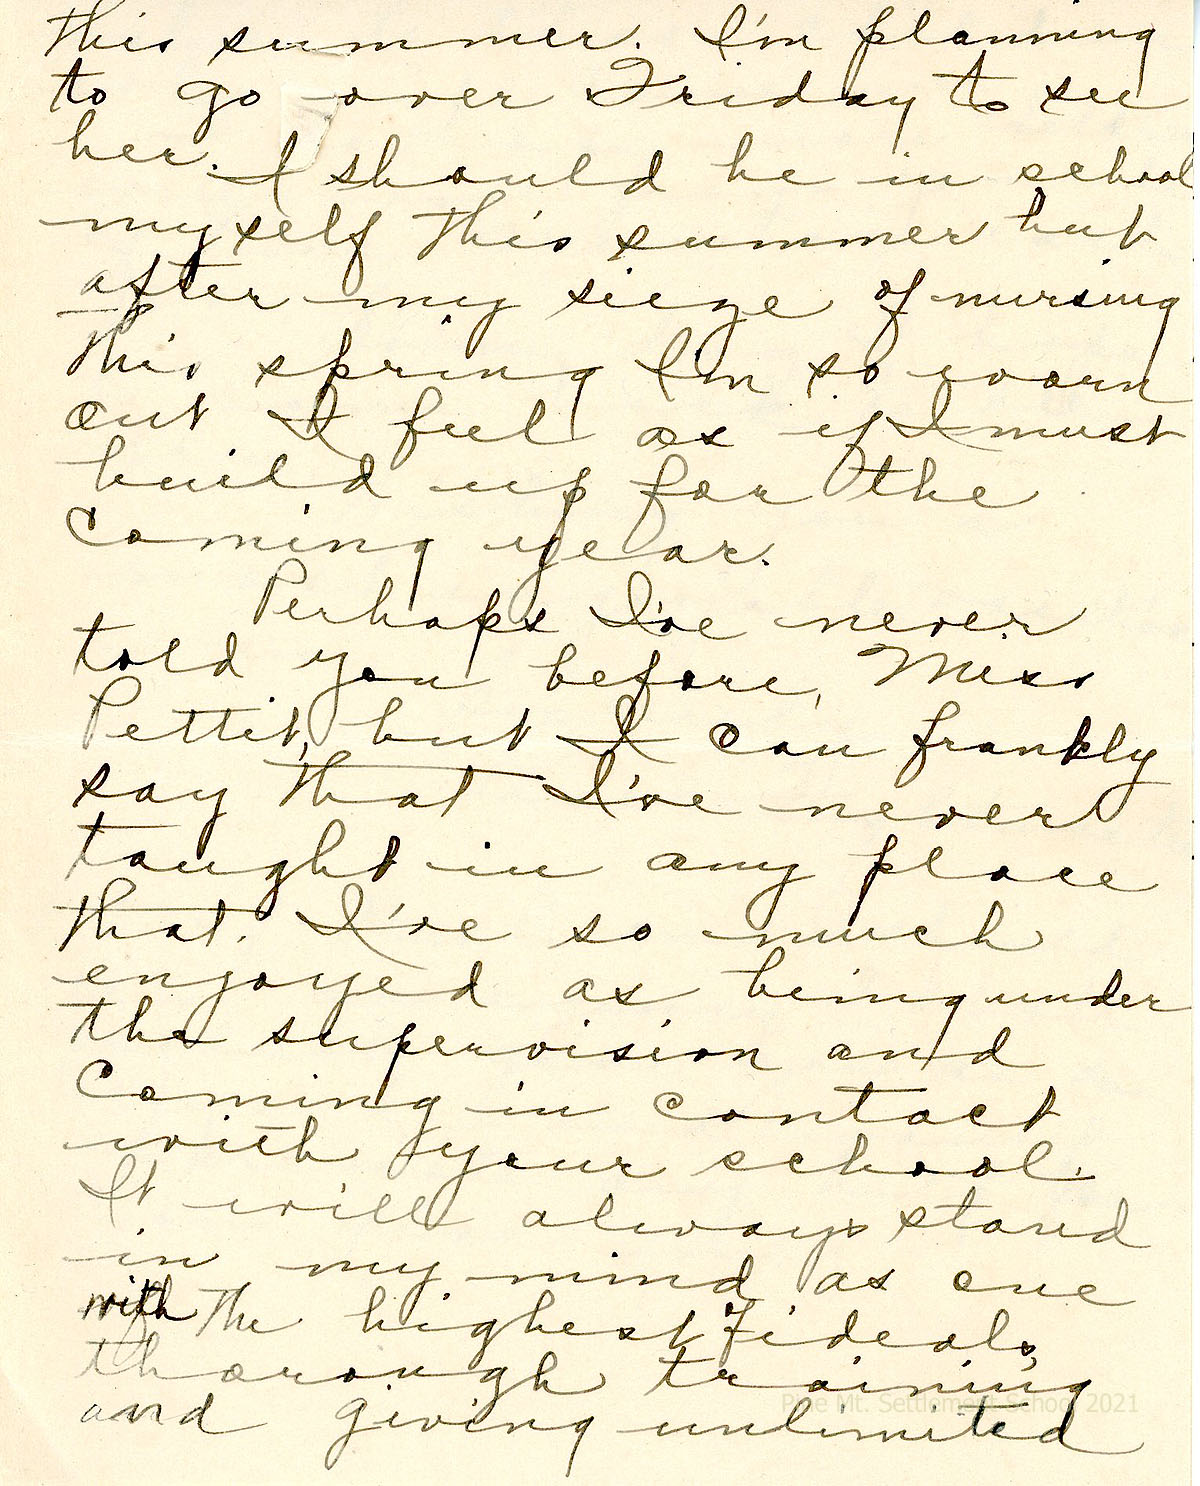 this summer. I'm planning
to go over Friday to see
her. I should be in school
myself this summer but
after my siege of nursing
this spring I'm so worn
out I feel as if I must
build up for the
coming year.
Perhaps I've never
told you before, Miss
Pettit, but I can frankly
say that I've never
taught in any place
that I've so much
enjoyed as being under
the supervision and
coming in contact
with your school.
It will always stand
in my mind as one
with the highest ideals,
thorough training
and giving unlimited
Pine Mt. Settlement School 2021